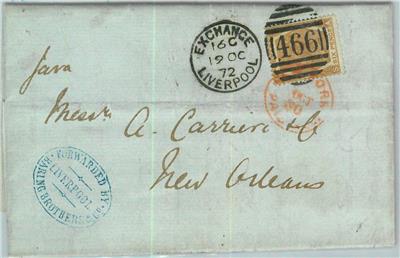 EXCHANGE
16 C
19 OC
72
LIVERPOOL
466
YORK
OC
30
Java
Messrs A. Carriere & Co
New Orleans
FORWARDED BY
LIVERPOOL
BARING BROTHERS & Co.